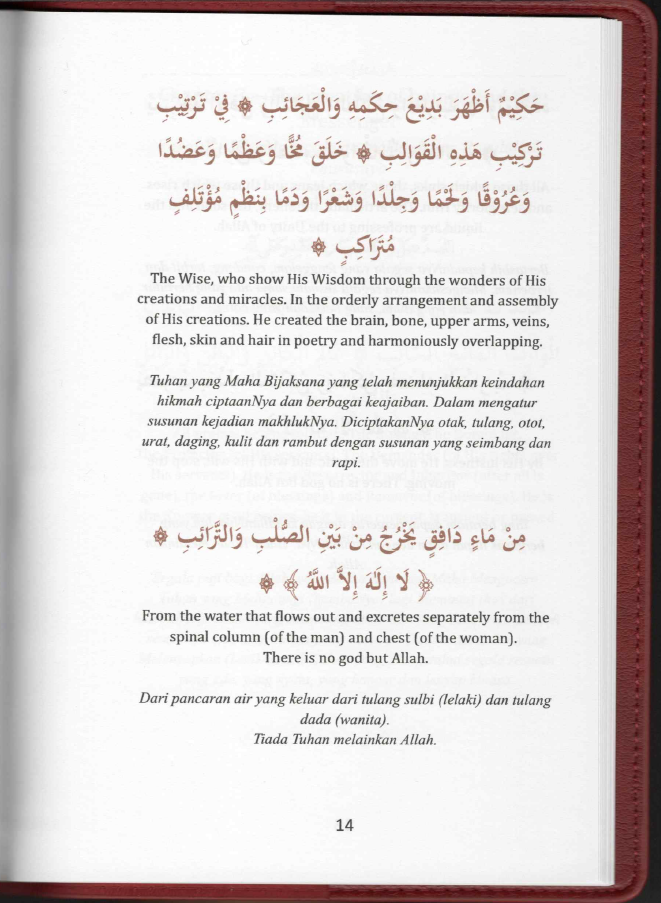 حَكِيْمٌ أَظْهَرَ بَدِيْعَ حِكَمِهِ وَالْعَجَائِبِ ۞ فِيْ تَرْتِيْبِ
تَرْكِيْبِ هَذِهِ الْقَوَالِبِ ۞ خَلَقَ مُخًّا وَعَظْمًا وَعَضُدًا
وَعُرُوْقًا وَلَحْمًا وَجِلْدًا وَشَعْرًا وَدَمًا بِنَظْمٍ مُؤْتَلِفٍ
مُتَرَاكِبٍ ۞
The Wise, who show His Wisdom through the wonders of His
creations and miracles. In the orderly arrangement and assembly
of His creations. He created the brain, bone, upper arms, veins,
flesh, skin and hair in poetry and harmoniously overlapping.
Tuhan yang Maha Bijaksana yang telah menunjukkan keindahan
hikmah ciptaanNya dan berbagai keajaiban. Dalam mengatur
susunan kejadian makhlukNya. DiciptakanNya otak, tulang, otot,
urat, daging, kulit dan rambut dengan susunan yang seimbang dan
rapi.
مِنْ مَاءٍ دَافِقٍ يَخْرُجُ مِنْ بَيْنِ الصُّلْبِ وَالتَّرَائِبِ ۞
﴿ لَا إِلَهَ إِلاَّ اللهُ ﴾ ۞ ۞
From the water that flows out and excretes separately from the
spinal column (of the man) and chest (of the woman).
There is no god but Allah.
Dari pancaran air yang keluar dari tulang sulbi (lelaki) dan tulang
dada (wanita).
Tiada Tuhan melainkan Allah.
14